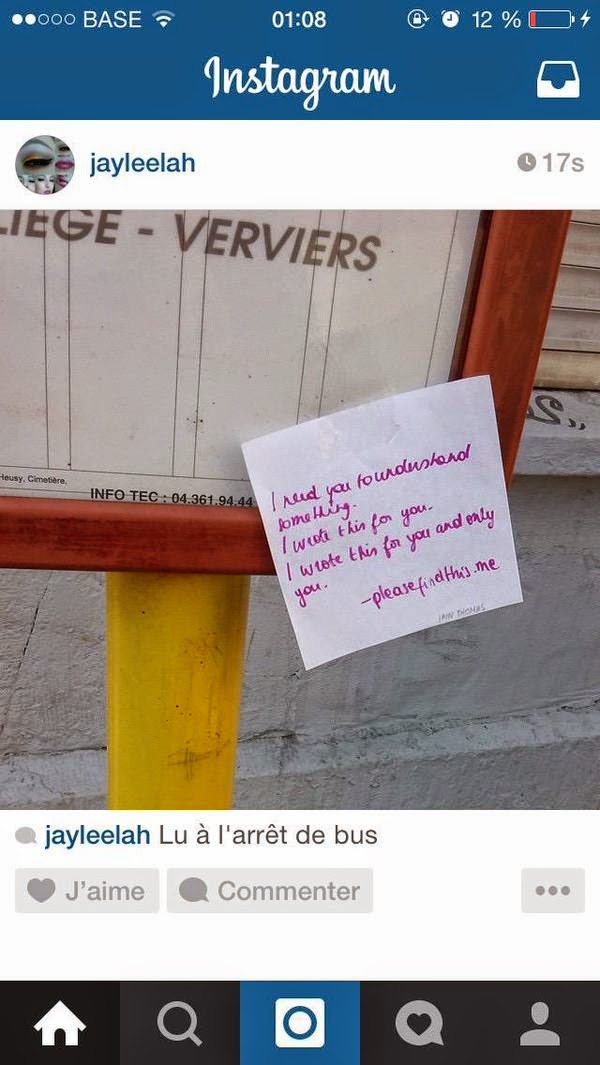 BASE 01:08 12 %
Instagram
jayleelah 17s
LIEGE - VERVIERS
Heusy, Cimetière.
INFO TEC : 04.361.94.44
I need you to understand
something.
I wrote this for you.
I wrote this for you and only
you.
-pleasefindthis.me
IAIN THOMAS
jayleelah Lu à l'arrêt de bus
J'aime Commenter